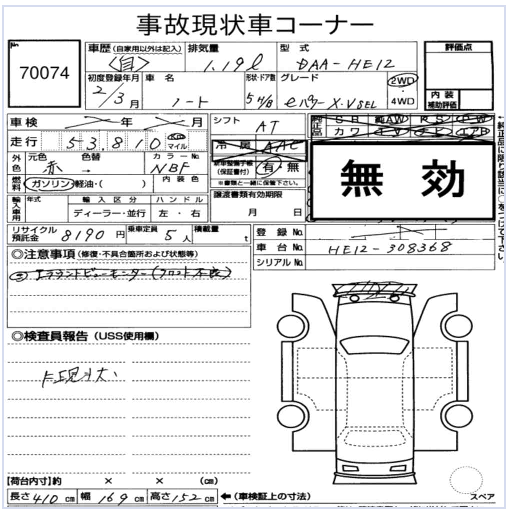 事故現状車コーナー
No
70074
車歴 (自家用以外は記入) 排気量 型式
(自) 1.19ℓ DAA-HE12
評価点
初度登録年月 車名 形状・ドア数 グレード
2/3月 ノート 5 H/B eパワーX.VSEL 2WD・4WD
内装
補助評価
車検 年 月 シフト AT
走行 53,810 Km マイル
冷房 AAC
外色 元色 色替 カラーNo
赤 → NBF
新車整備手帳(保証書付) 有 無
※書類と一緒に保管下さい。
燃料 ガソリン・軽油・( ) 内装色
輸入車用 年式 輸入区分 ハンドル
ディーラー・並行 左・右
譲渡書類有効期限
月 日
無効
リサイクル預託金 8190円 乗車定員 5人 積載量 t
登録No.
車台No. HE12-308368
シリアルNo.
◎注意事項 (修復・不具合箇所および状態等)
アラウンドビューモニター(フロント不良)
◎検査員報告 (USS使用欄)
現状
[荷台内寸]約 × × (cm)
長さ 410 cm 幅 169 cm 高さ 152 cm ←(車検証上の寸法)
スペア